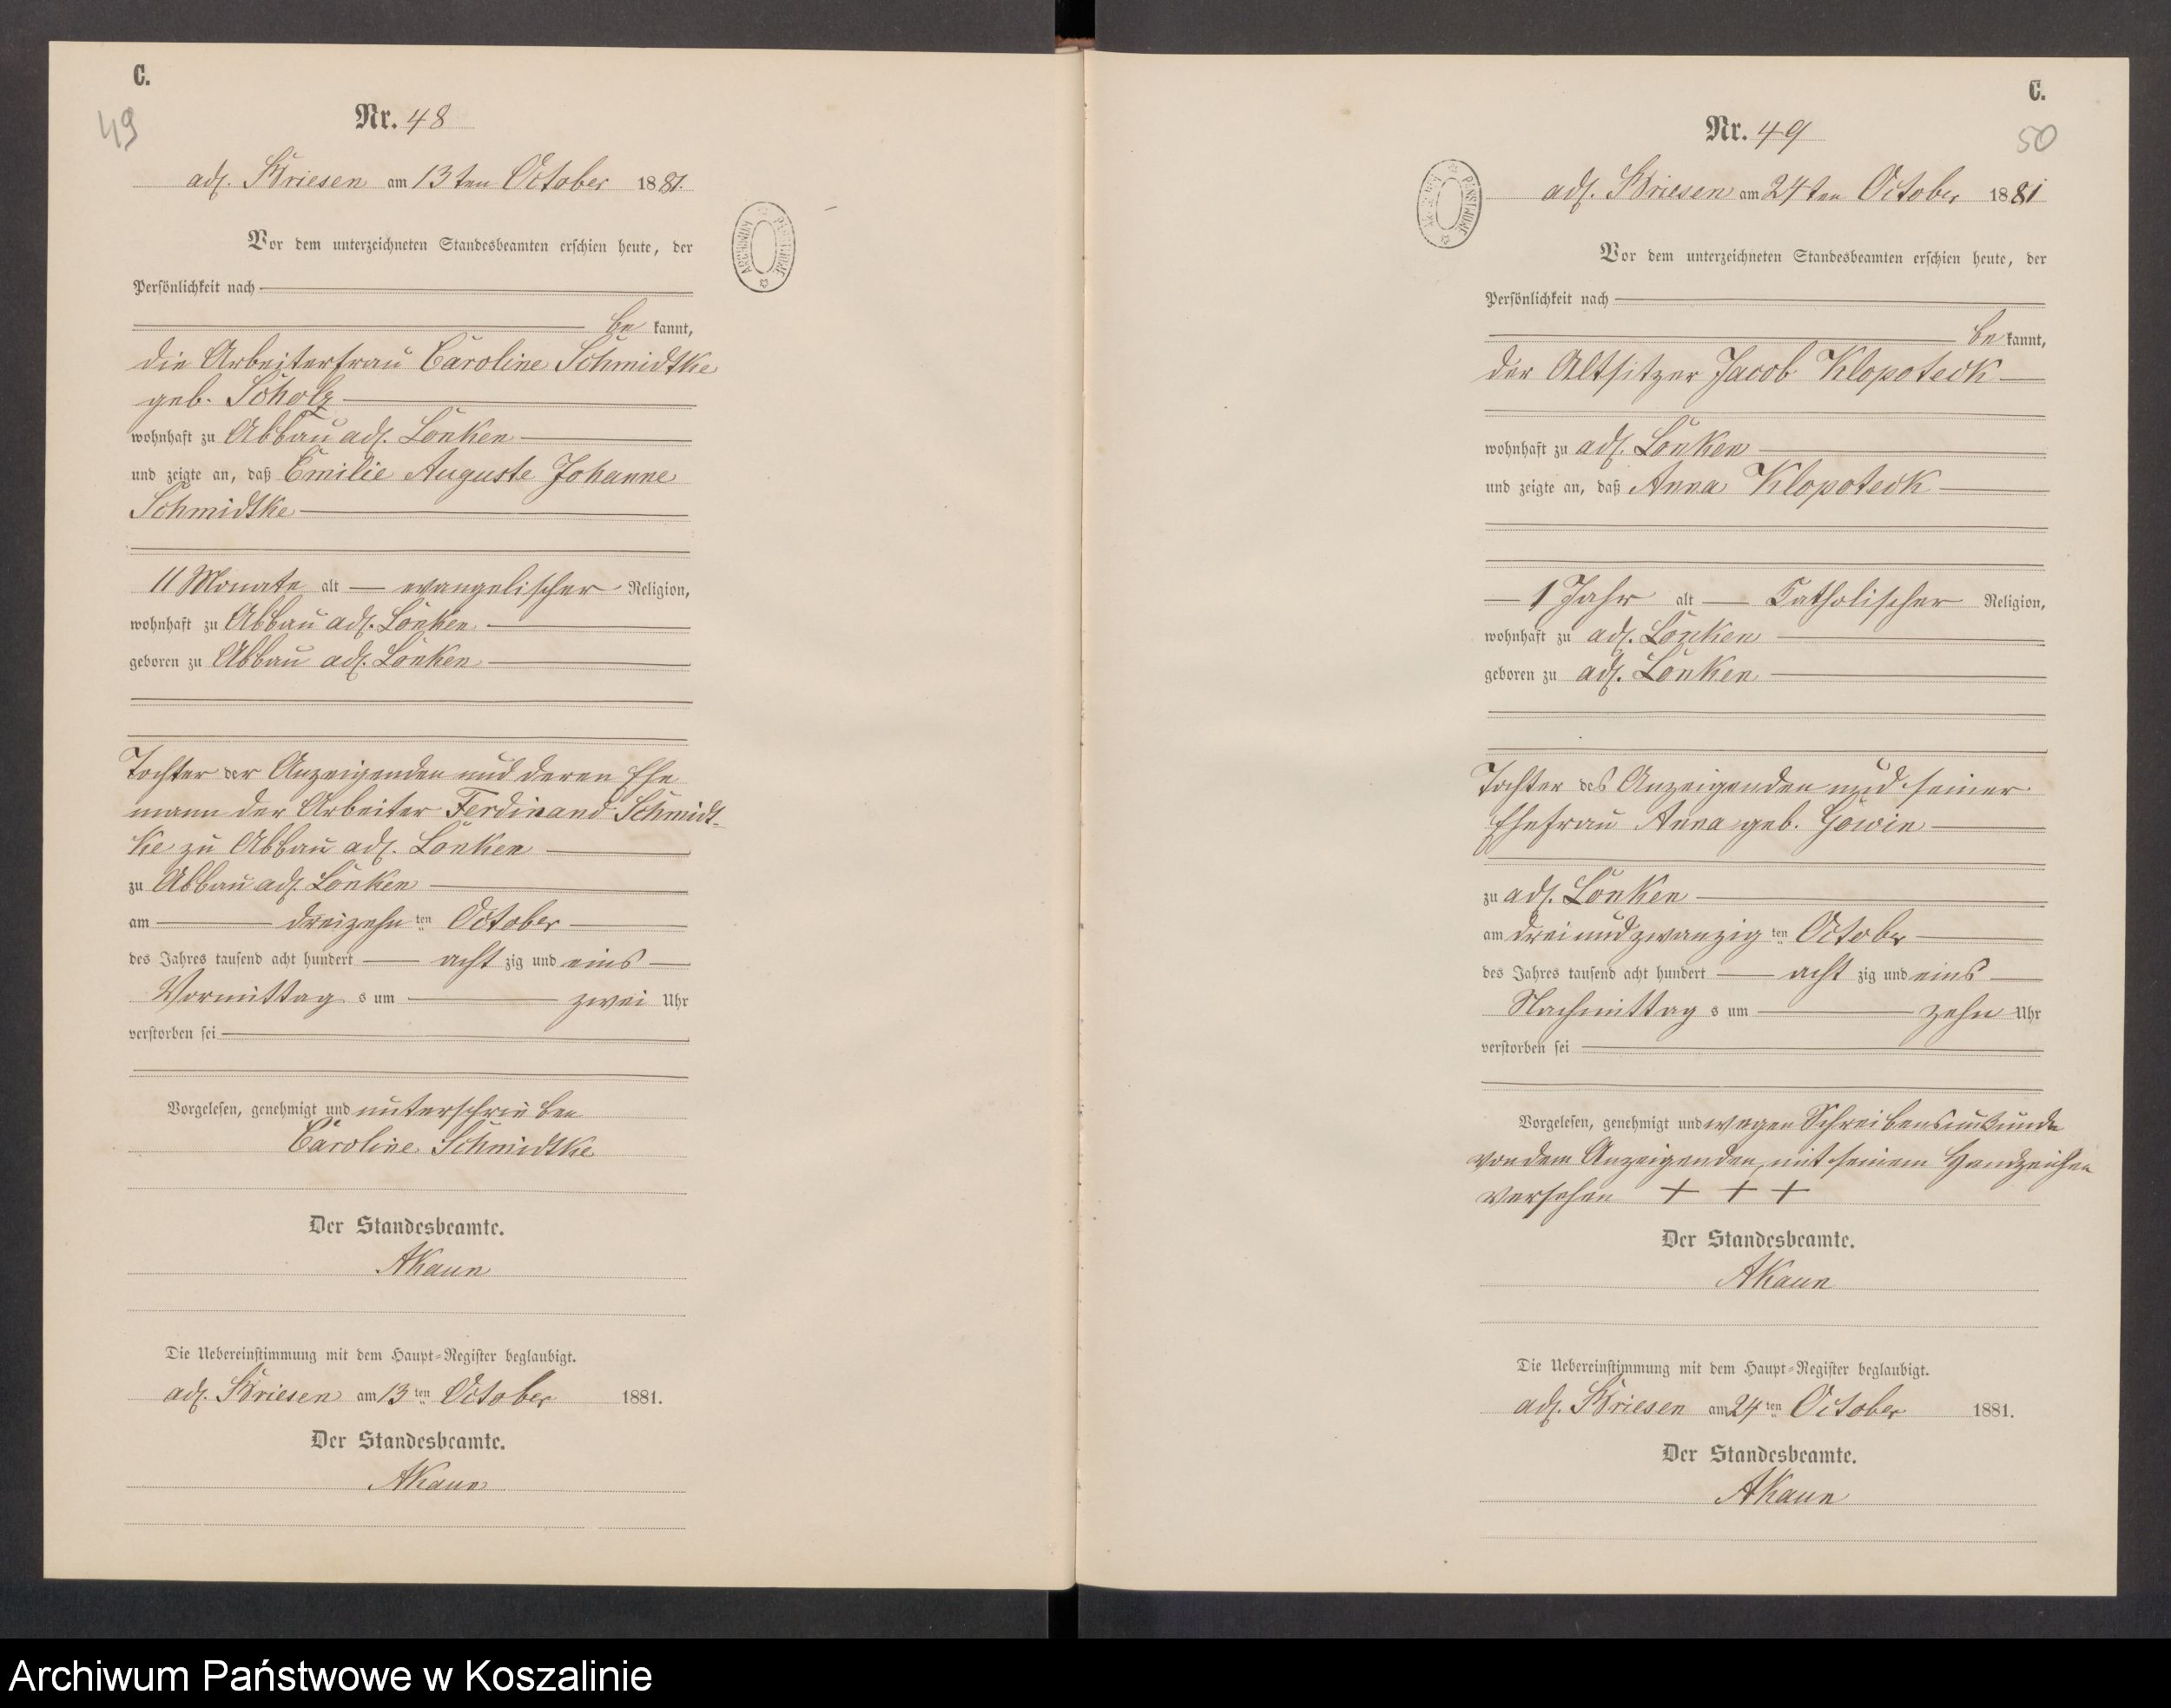 C.
49
Nr. 48
adl. Briesen am 13ten October 1881.
Vor dem unterzeichneten Standesbeamten erschien heute, der
Persönlichkeit nach
be kannt,
die Arbeiterfrau Caroline Schmidtke
geb. Scholz
wohnhaft zu Abbau adl. Lonken
und zeigte an, daß Emilie Auguste Johanne
Schmidtke
11 Monate alt evangelischer Religion,
wohnhaft zu Abbau adl. Lonken
geboren zu Abbau adl. Lonken
Tochter der Anzeigenden und deren Ehe
mann der Arbeiter Ferdinand Schmidt-
ke zu Abbau adl. Lonken
zu Abbau adl. Lonken
am dreizehn ten October
des Jahres tausend acht hundert acht zig und eins
Vormittag s um zwei Uhr
verstorben sei
Vorgelesen, genehmigt und unterschrieben
Caroline Schmidtke
Der Standesbeamte.
AKaun
Die Uebereinstimmung mit dem Haupt-Register beglaubigt.
adl. Briesen am 13ten October 1881.
Der Standesbeamte.
AKaun
ARCHIWUM PAŃSTWOWE
C.
50
Nr. 49
adl. Briesen am 24ten October 1881
Vor dem unterzeichneten Standesbeamten erschien heute, der
Persönlichkeit nach
be kannt,
der Altsitzer Jacob Klopoteck
wohnhaft zu adl. Lonken
und zeigte an, daß Anna Klopoteck
1 Jahr alt Katholischer Religion,
wohnhaft zu adl. Lonken
geboren zu adl. Lonken
Tochter des Anzeigenden und seiner
Ehefrau Anna geb. Gowin
zu adl. Lonken
am dreiundzwanzig ten October
des Jahres tausend acht hundert acht zig und eins
Nachmittag s um zehn Uhr
verstorben sei
Vorgelesen, genehmigt und wegen Schreibensunkunde
von dem Anzeigenden, mit seinem Handzeichen
versehen + + +
Der Standesbeamte.
AKaun
Die Uebereinstimmung mit dem Haupt-Register beglaubigt.
adl. Briesen am 24ten October 1881.
Der Standesbeamte.
AKaun
ARCHIWUM PAŃSTWOWE
Archiwum Państwowe w Koszalinie